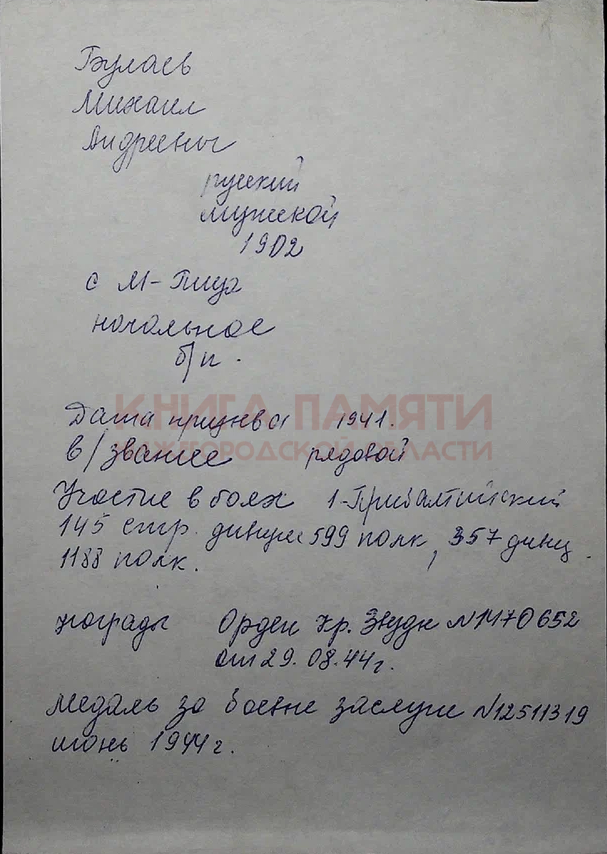 Булаев
Михаил
Андреевич
русский
мужской
1902
с М-Пица
начальное
б/п.
КНИГА ПАМЯТИ
НИЖЕГОРОДСКОЙ ОБЛАСТИ
Дата призыва 1941.
в/звание рядовой
Участие в боях 1-Прибалтийский
145 стр. дивизия 599 полк, 357 дивиз.
1188 полк.
награды Орден Кр. Звезды N1470652
от 29.08.44г.
медаль за боевые заслуги N12511319
июнь 1944г.